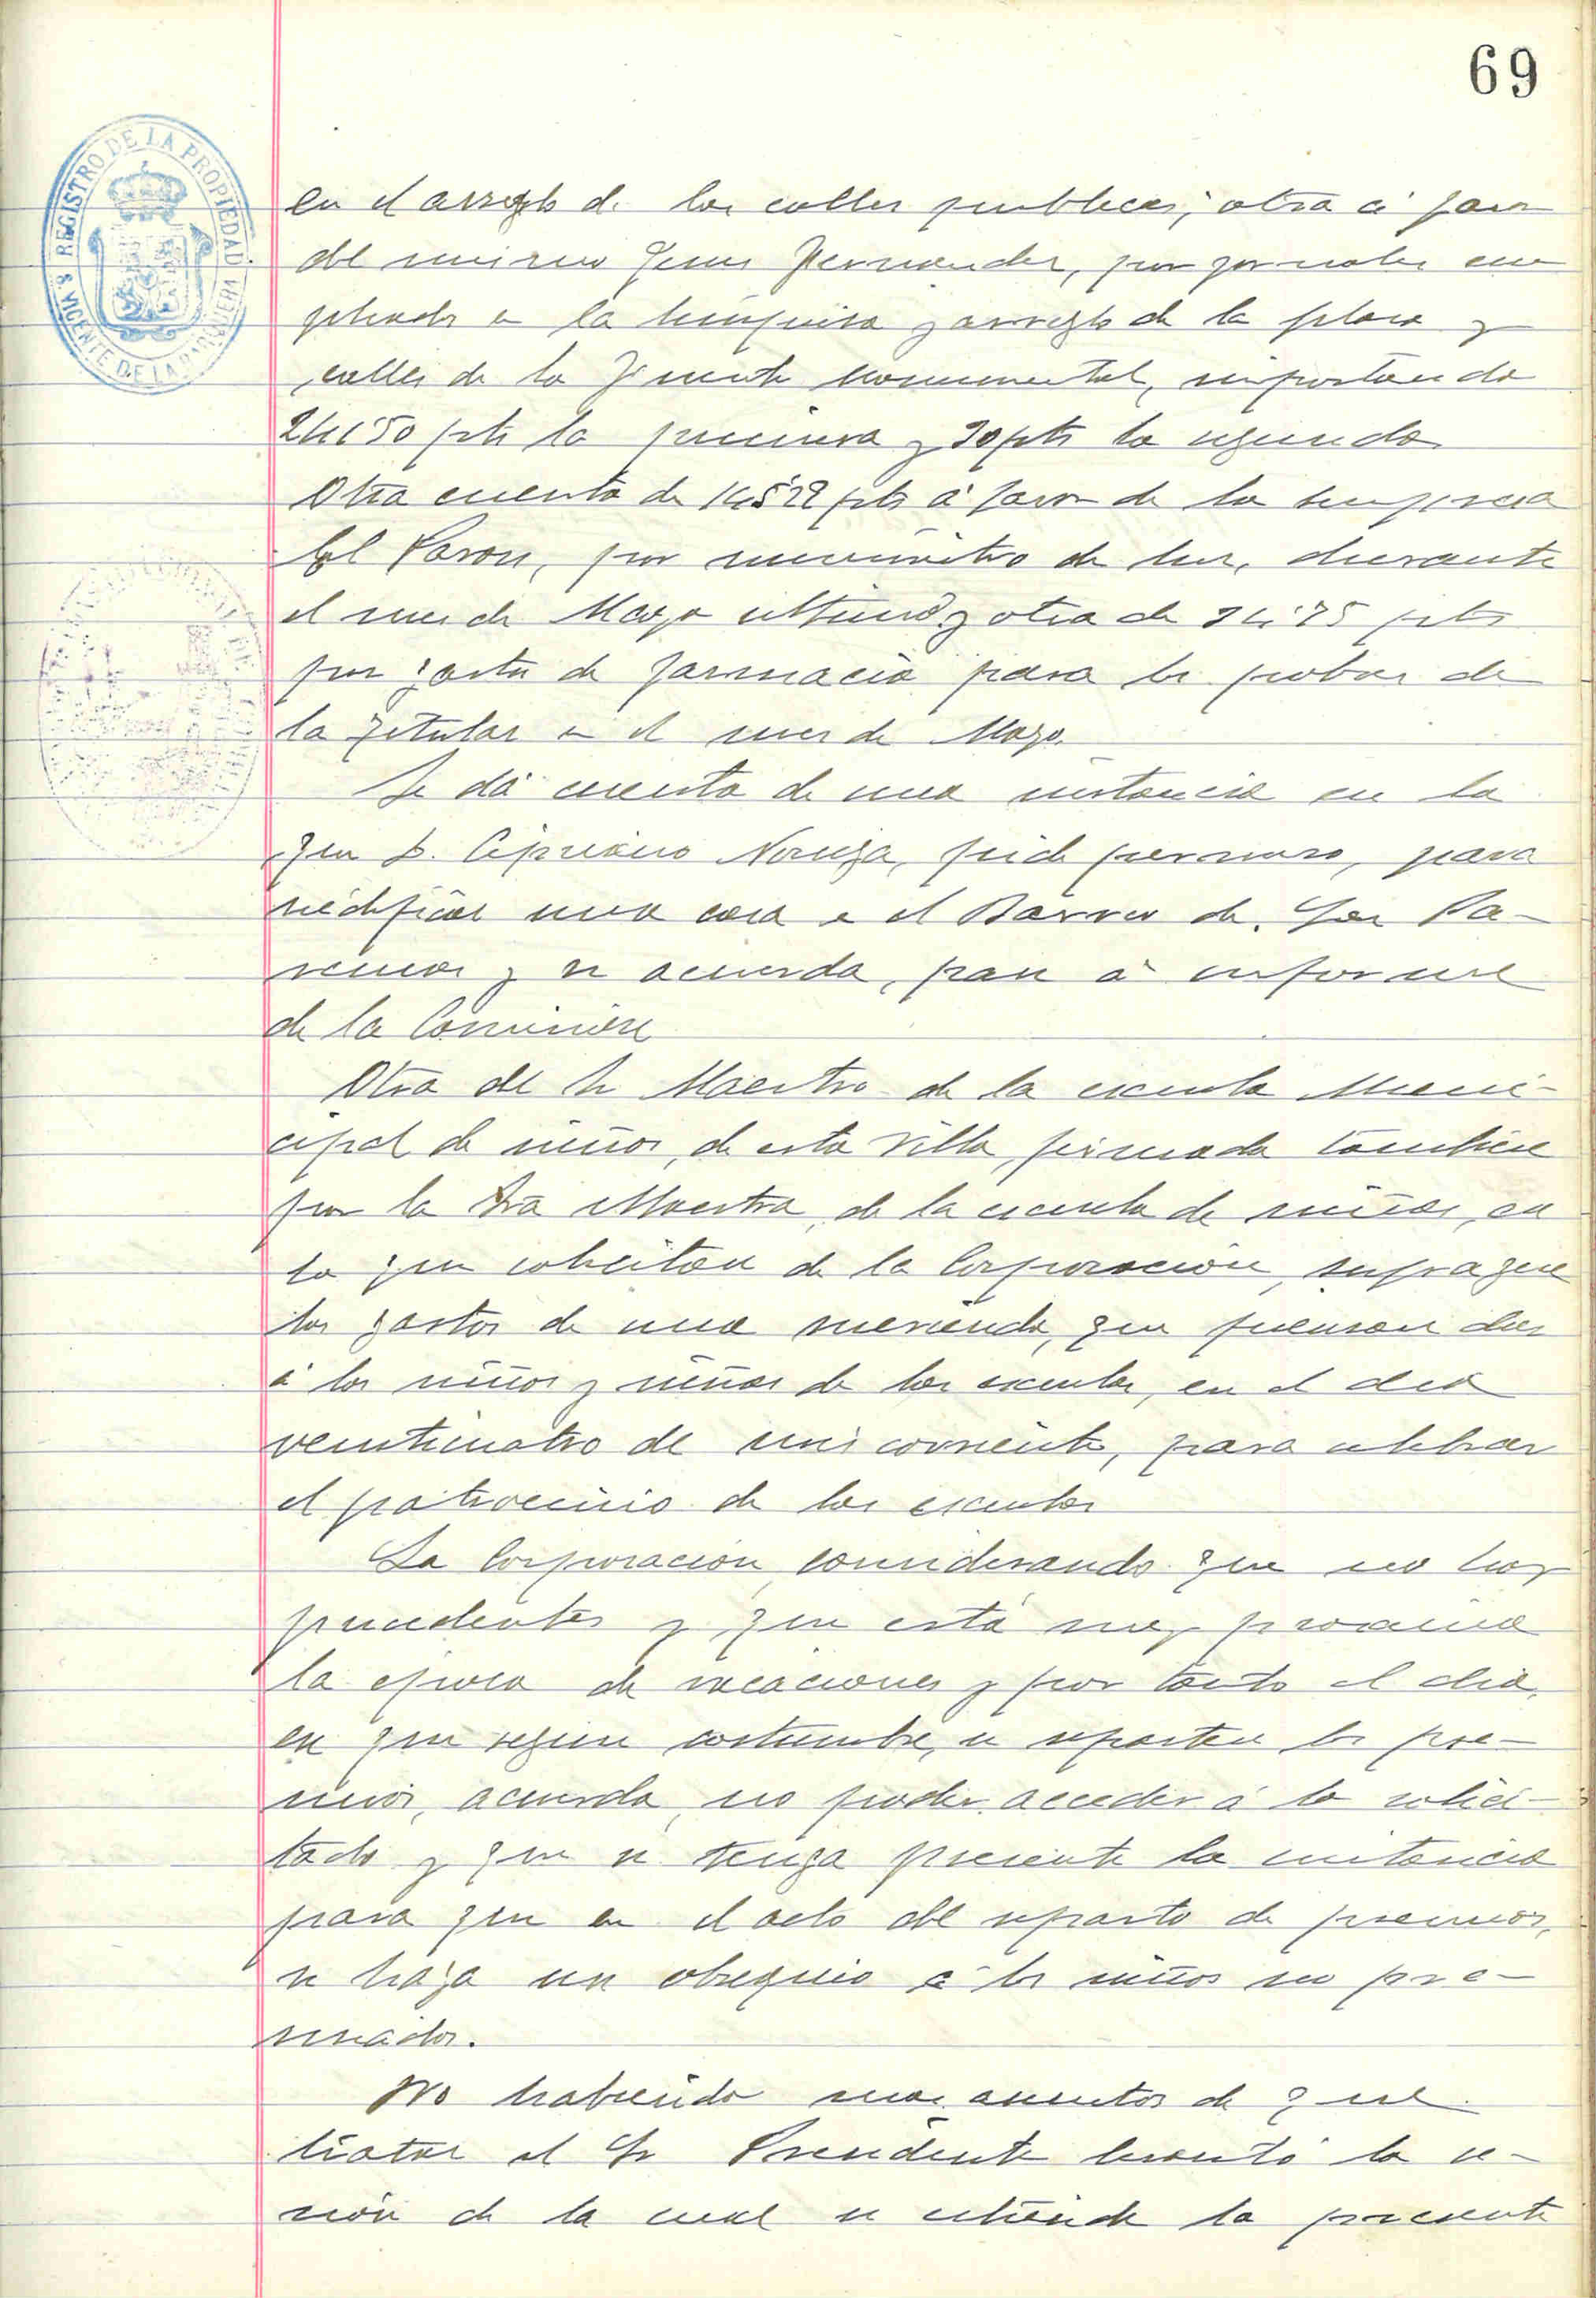 69
REGISTRO DE LA PROPIEDAD
S. VICENTE DE LA BARQUERA
en el arreglo de las calles publicas; otra á favor
del mismo Jesus Fernandez, por jornales em
pleados en la limpieza y arreglo de la plaza y
calles de la Fuente Monumental, importando
pts la primera y 30 pts la segunda
Otra cuenta de pts á favor de la empresa
El Páron, por suministro de luz, durante
el mes de Mayo ultimo y otra de pts
por gastos de farmacia para los pobres de
la titular en el mes de Mayo.
Se dá cuenta de una instancia en la
que D. Cipriano Noriega, pide permiso, para
reedificar una casa en el Barrio de
y se acuerda, pase á informe
de la Comisión
Otra del Sr Maestro de la escuela Muni-
cipal de niños, de esta Villa, firmada tambien
por la Sra Maestra, de la escuela de niñas, en
la que solicitan de la Corporación, sufrague
los gastos de una merienda, que piensan dar
á los niños y niñas de las escuelas, en el dia
veinticuatro del mes corriente, para celebrar
el patrocinio de las escuelas
La Corporacion, considerando que no hay
precedentes y que está muy proxima
la epoca de vacaciones y por tanto el dia,
en que segun costumbre, se reparten los pre-
mios, acuerda, no poder acceder á lo solici-
tado y que se tenga presente la instancia
para que en el acto del reparto de premios,
se haga un obsequio á los niños no pre-
miados.
No habiendo mas asuntos de que
tratar el Sr Presidente levantó la se-
sión de la cual se extiende la presente